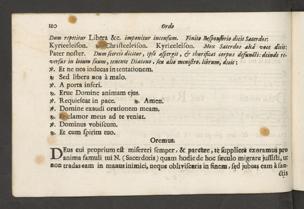 120 Ordo
Dum repetitur Libera &c. imponitur incensum. Finito Responsorio dicit Sacerdos:
Kyrieeleison. Christeeleison. Kyrieeleison. Mox Sacerdos alta voce dicit:
Pater noster. Dum secreto dicitur, ipse aspergit, & thurificat corpus defuncti: deinde re-
versus in locum suum, tenente Diacono, seu alio ministro, librum, dicit:
℟. Et ne nos inducas in tentationem.
℟. Sed libera nos à malo.
℣. A porta inferi.
℟. Erue Domine animam ejus.
℣. Requiescat in pace. ℟. Amen.
℣. Domine exaudi orationem meam.
℟. Et clamor meus ad te veniat.
℣. Dominus vobiscum.
℟. Et cum spiritu tuo.
Oremus.
Deus cui proprium est misereri semper, & parcere, te supplices exoramus pro
anima famuli tui N. (Sacerdotis) quam hodie de hoc sæculo migrare jussisti, ut
non tradas eam in manus inimici, neque obliviscaris in finem, sed jubeas eam à san-
ctis